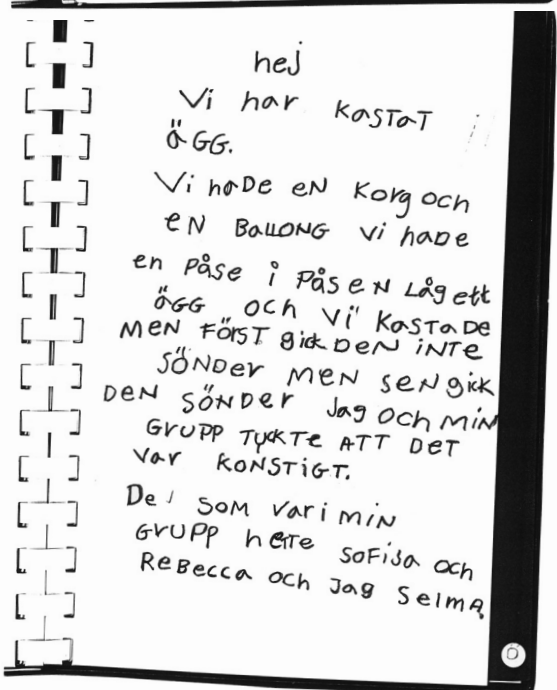 hej
Vi har KaSTaT
äGG.
Vi haDe eN Korg och
eN BaLLONG Vi haDe
en Påse i PåSeN Låg ett
äGG och Vi KaSTaDe
MeN FÖrST gick DeN iNTe
SÖNDer MeN SeN gick
DeN SÖNDer Jag och MiN
GrUPP TyckTe ATT DeT
Var KoNSTiGT.
De SoM Var i MiN
GrUPP heTTe SoFiJa och
ReBecca och Jag SelMa.
Ö